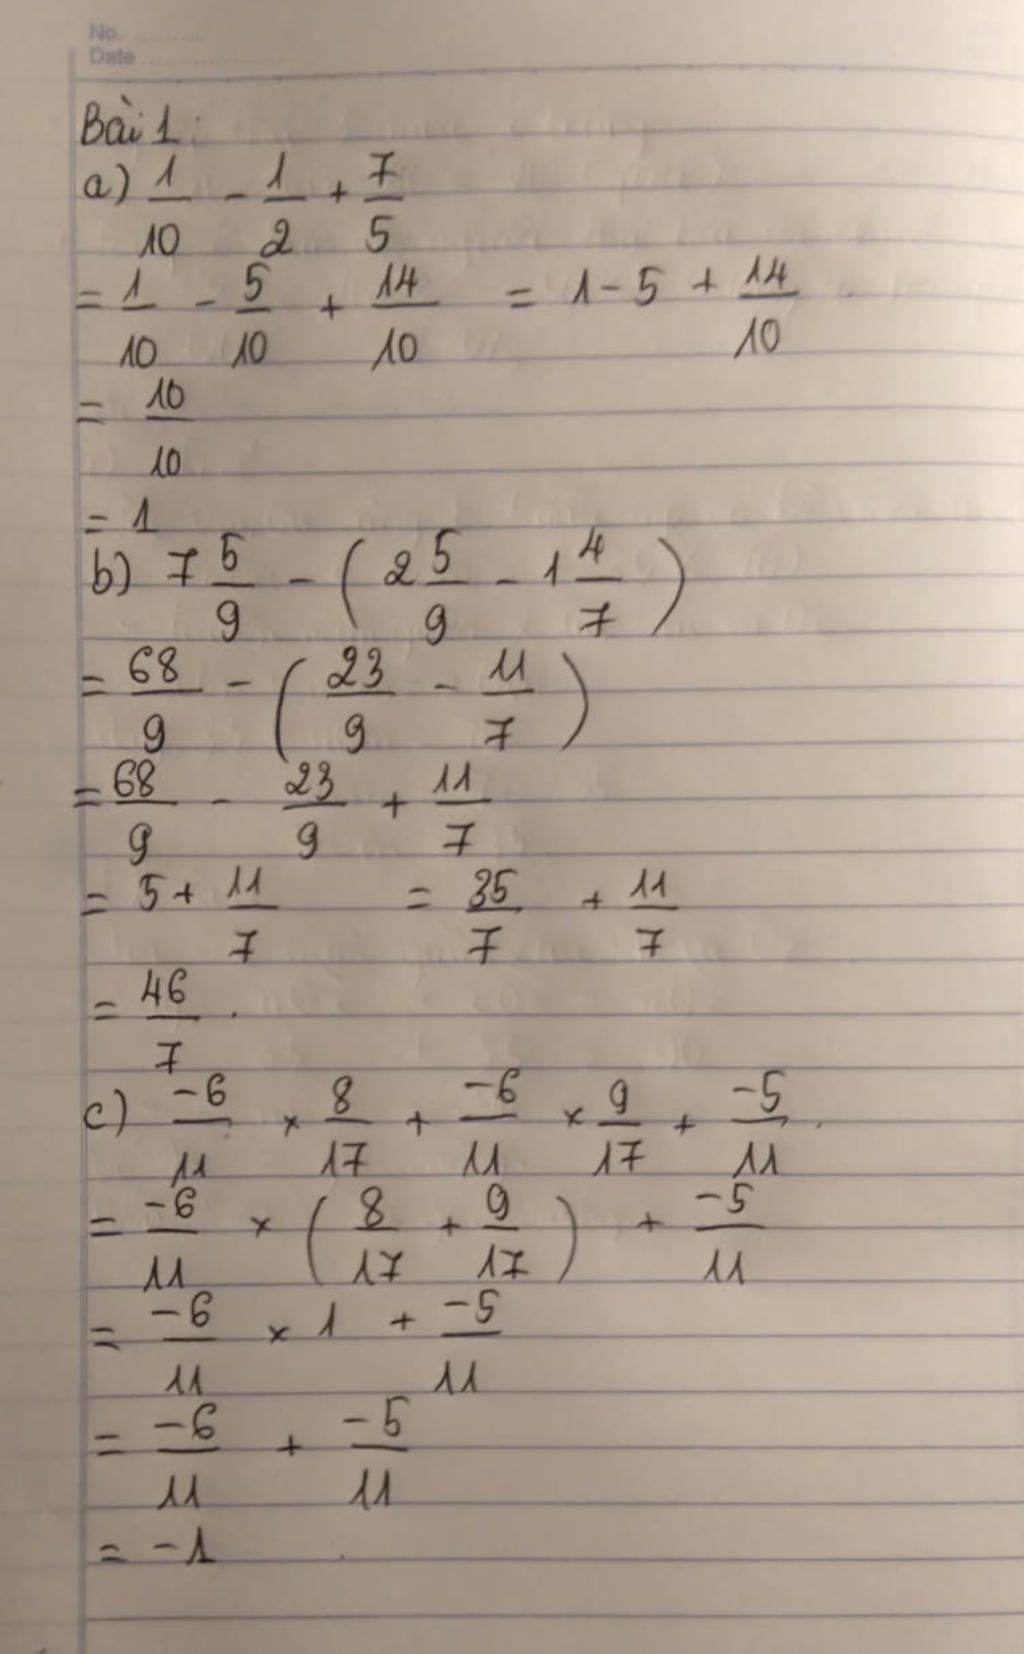 No.
Date
Bài 1:
a) 1/10 - 1/2 + 7/5
= 1/10 - 5/10 + 14/10 = 1 - 5 + 14/10
= 10/10
= 1
b) 7 5/9 - ( 2 5/9 - 1 4/7 )
= 68/9 - ( 23/9 - 11/7 )
= 68/9 - 23/9 + 11/7
= 5 + 11/7 = 35/7 + 11/7
= 46/7 .
c) -6/11 × 8/17 + -6/11 × 9/17 + -5/11 .
= -6/11 × ( 8/17 + 9/17 ) + -5/11
= -6/11 × 1 + -5/11
= -6/11 + -5/11
= -1